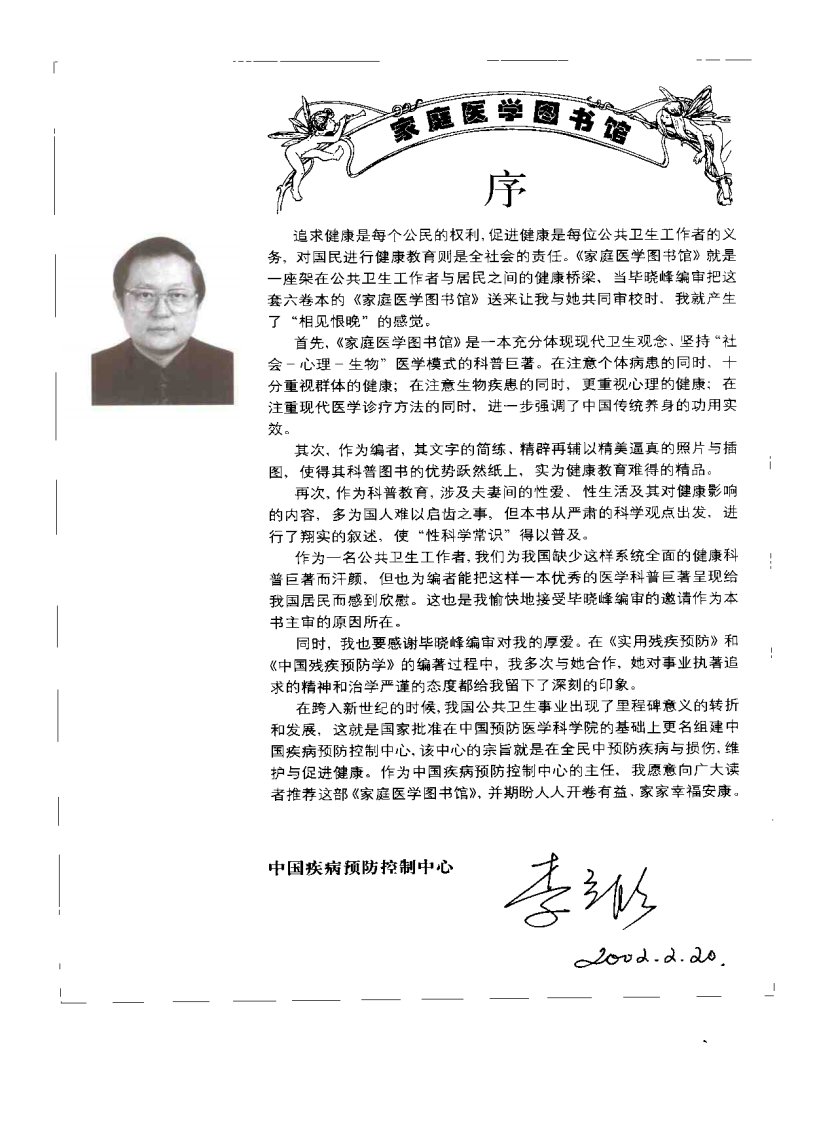 家庭医学图书馆
序
追求健康是每个公民的权利,促进健康是每位公共卫生工作者的义
务，对国民进行健康教育则是全社会的责任。《家庭医学图书馆》就是
一座架在公共卫生工作者与居民之间的健康桥梁、当毕晓峰编审把这
套六卷本的《家庭医学图书馆》送来让我与她共同审校时、我就产生
了“相见恨晚”的感觉。
首先、《家庭医学图书馆》是一本充分体现现代卫生观念、坚持“社
会－心理－生物”医学模式的科普巨著。在注意个体病患的同时、十
分重视群体的健康；在注意生物疾患的同时、更重视心理的健康；在
注重现代医学诊疗方法的同时、进一步强调了中国传统养身的功用实
效。
其次、作为编者，其文字的简练、精辟再辅以精美逼真的照片与插
图，使得其科普图书的优势跃然纸上、实为健康教育难得的精品。
再次、作为科普教育，涉及夫妻间的性爱、性生活及其对健康影响
的内容，多为国人难以启齿之事，但本书从严肃的科学观点出发、进
行了翔实的叙述，使“性科学常识”得以普及。
作为一名公共卫生工作者,我们为我国缺少这样系统全面的健康科
普巨著而汗颜、但也为编者能把这样一本优秀的医学科普巨著呈现给
我国居民而感到欣慰。这也是我愉快地接受毕晓峰编审的邀请作为本
书主审的原因所在。
同时，我也要感谢毕晓峰编审对我的厚爱。在《实用残疾预防》和
《中国残疾预防学》的编著过程中，我多次与她合作，她对事业执著追
求的精神和治学严谨的态度都给我留下了深刻的印象。
在跨入新世纪的时候,我国公共卫生事业出现了里程碑意义的转折
和发展，这就是国家批准在中国预防医学科学院的基础上更名组建中
国疾病预防控制中心,该中心的宗旨就是在全民中预防疾病与损伤,维
护与促进健康。作为中国疾病预防控制中心的主任、我愿意向广大读
者推荐这部《家庭医学图书馆》，并期盼人人开卷有益、家家幸福安康。
中国疾病预防控制中心
李立明
2002.2.20.